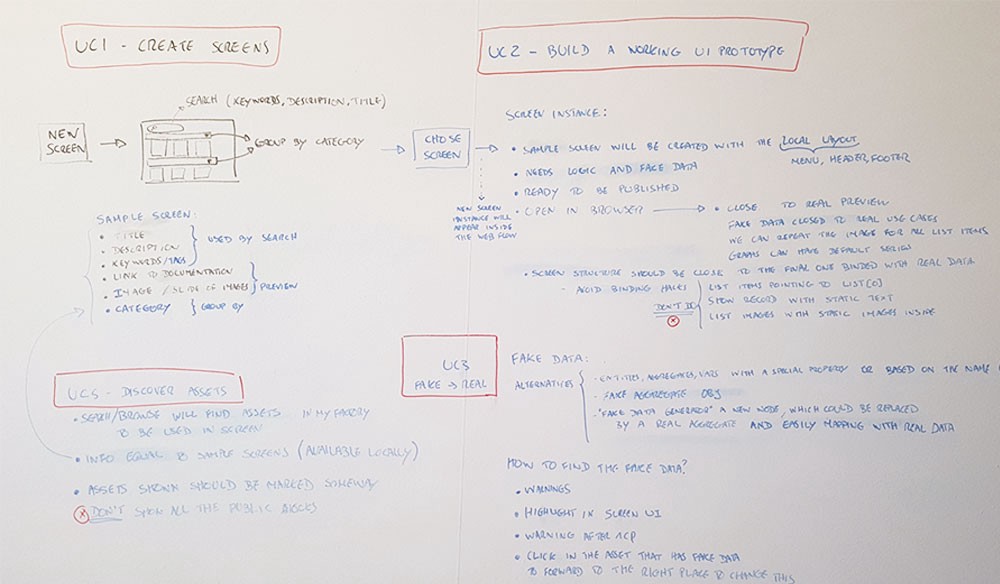 UC1 - CREATE SCREENS
SEARCH (KEYWORDS, DESCRIPTION, TITLE)
NEW
SCREEN
GROUP BY CATEGORY
CHOOSE
SCREEN
SAMPLE SCREEN:
• TITLE
• DESCRIPTION
• KEYWORDS/TAGS
USED BY SEARCH
• LINK TO DOCUMENTATION
• IMAGE / SLIDE OF IMAGES
PREVIEW
• CATEGORY
GROUP BY
UC5 - DISCOVER ASSETS
• SEARCH/BROWSE WILL FIND ASSETS IN MY FACTORY
TO BE USED IN SCREEN
• INFO EQUAL TO SAMPLE SCREENS (AVAILABLE LOCALLY)
• ASSETS SHOWN SHOULD BE MARKED SOMEWAY
DON'T SHOW ALL THE PUBLIC BLOCKS
UC2 - BUILD A WORKING UI PROTOTYPE
SCREEN INSTANCE:
• SAMPLE SCREEN WILL BE CREATED WITH THE LOCAL LAYOUT
MENU, HEADER, FOOTER
• NEEDS LOGIC AND FAKE DATA
• READY TO BE PUBLISHED
• OPEN IN BROWSER
NEW SCREEN
INSTANCE WILL
APPEAR INSIDE
THE WEB FLOW
• CLOSE TO REAL PREVIEW
FAKE DATA CLOSED TO REAL USE CASES
WE CAN REPEAT THE IMAGE FOR ALL LIST ITEMS
GRAPHS CAN HAVE DEFAULT SERIES
• SCREEN STRUCTURE SHOULD BE CLOSE TO THE FINAL ONE BINDED WITH REAL DATA
- AVOID BINDING HACKS
DON'T DO
LIST ITEMS POINTING TO LIST[0]
SHOW RECORD WITH STATIC TEXT
LIST IMAGES WITH STATIC IMAGES INSIDE
UC3
FAKE → REAL
FAKE DATA:
ALTERNATIVES
- ENTITIES, AGGREGATES, VARS WITH A SPECIAL PROPERTY OR BASED ON THE NAME
- FAKE AGGREGATE OBJ
- "FAKE DATA GENERATOR" A NEW NODE, WHICH COULD BE REPLACED
BY A REAL AGGREGATE AND EASILY MAPPING WITH REAL DATA
HOW TO FIND THE FAKE DATA?
• WARNINGS
• HIGHLIGHT IN SCREEN UI
• WARNING AFTER 1CP
• CLICK IN THE ASSET THAT HAS FAKE DATA
TO FORWARD TO THE RIGHT PLACE TO CHANGE THIS